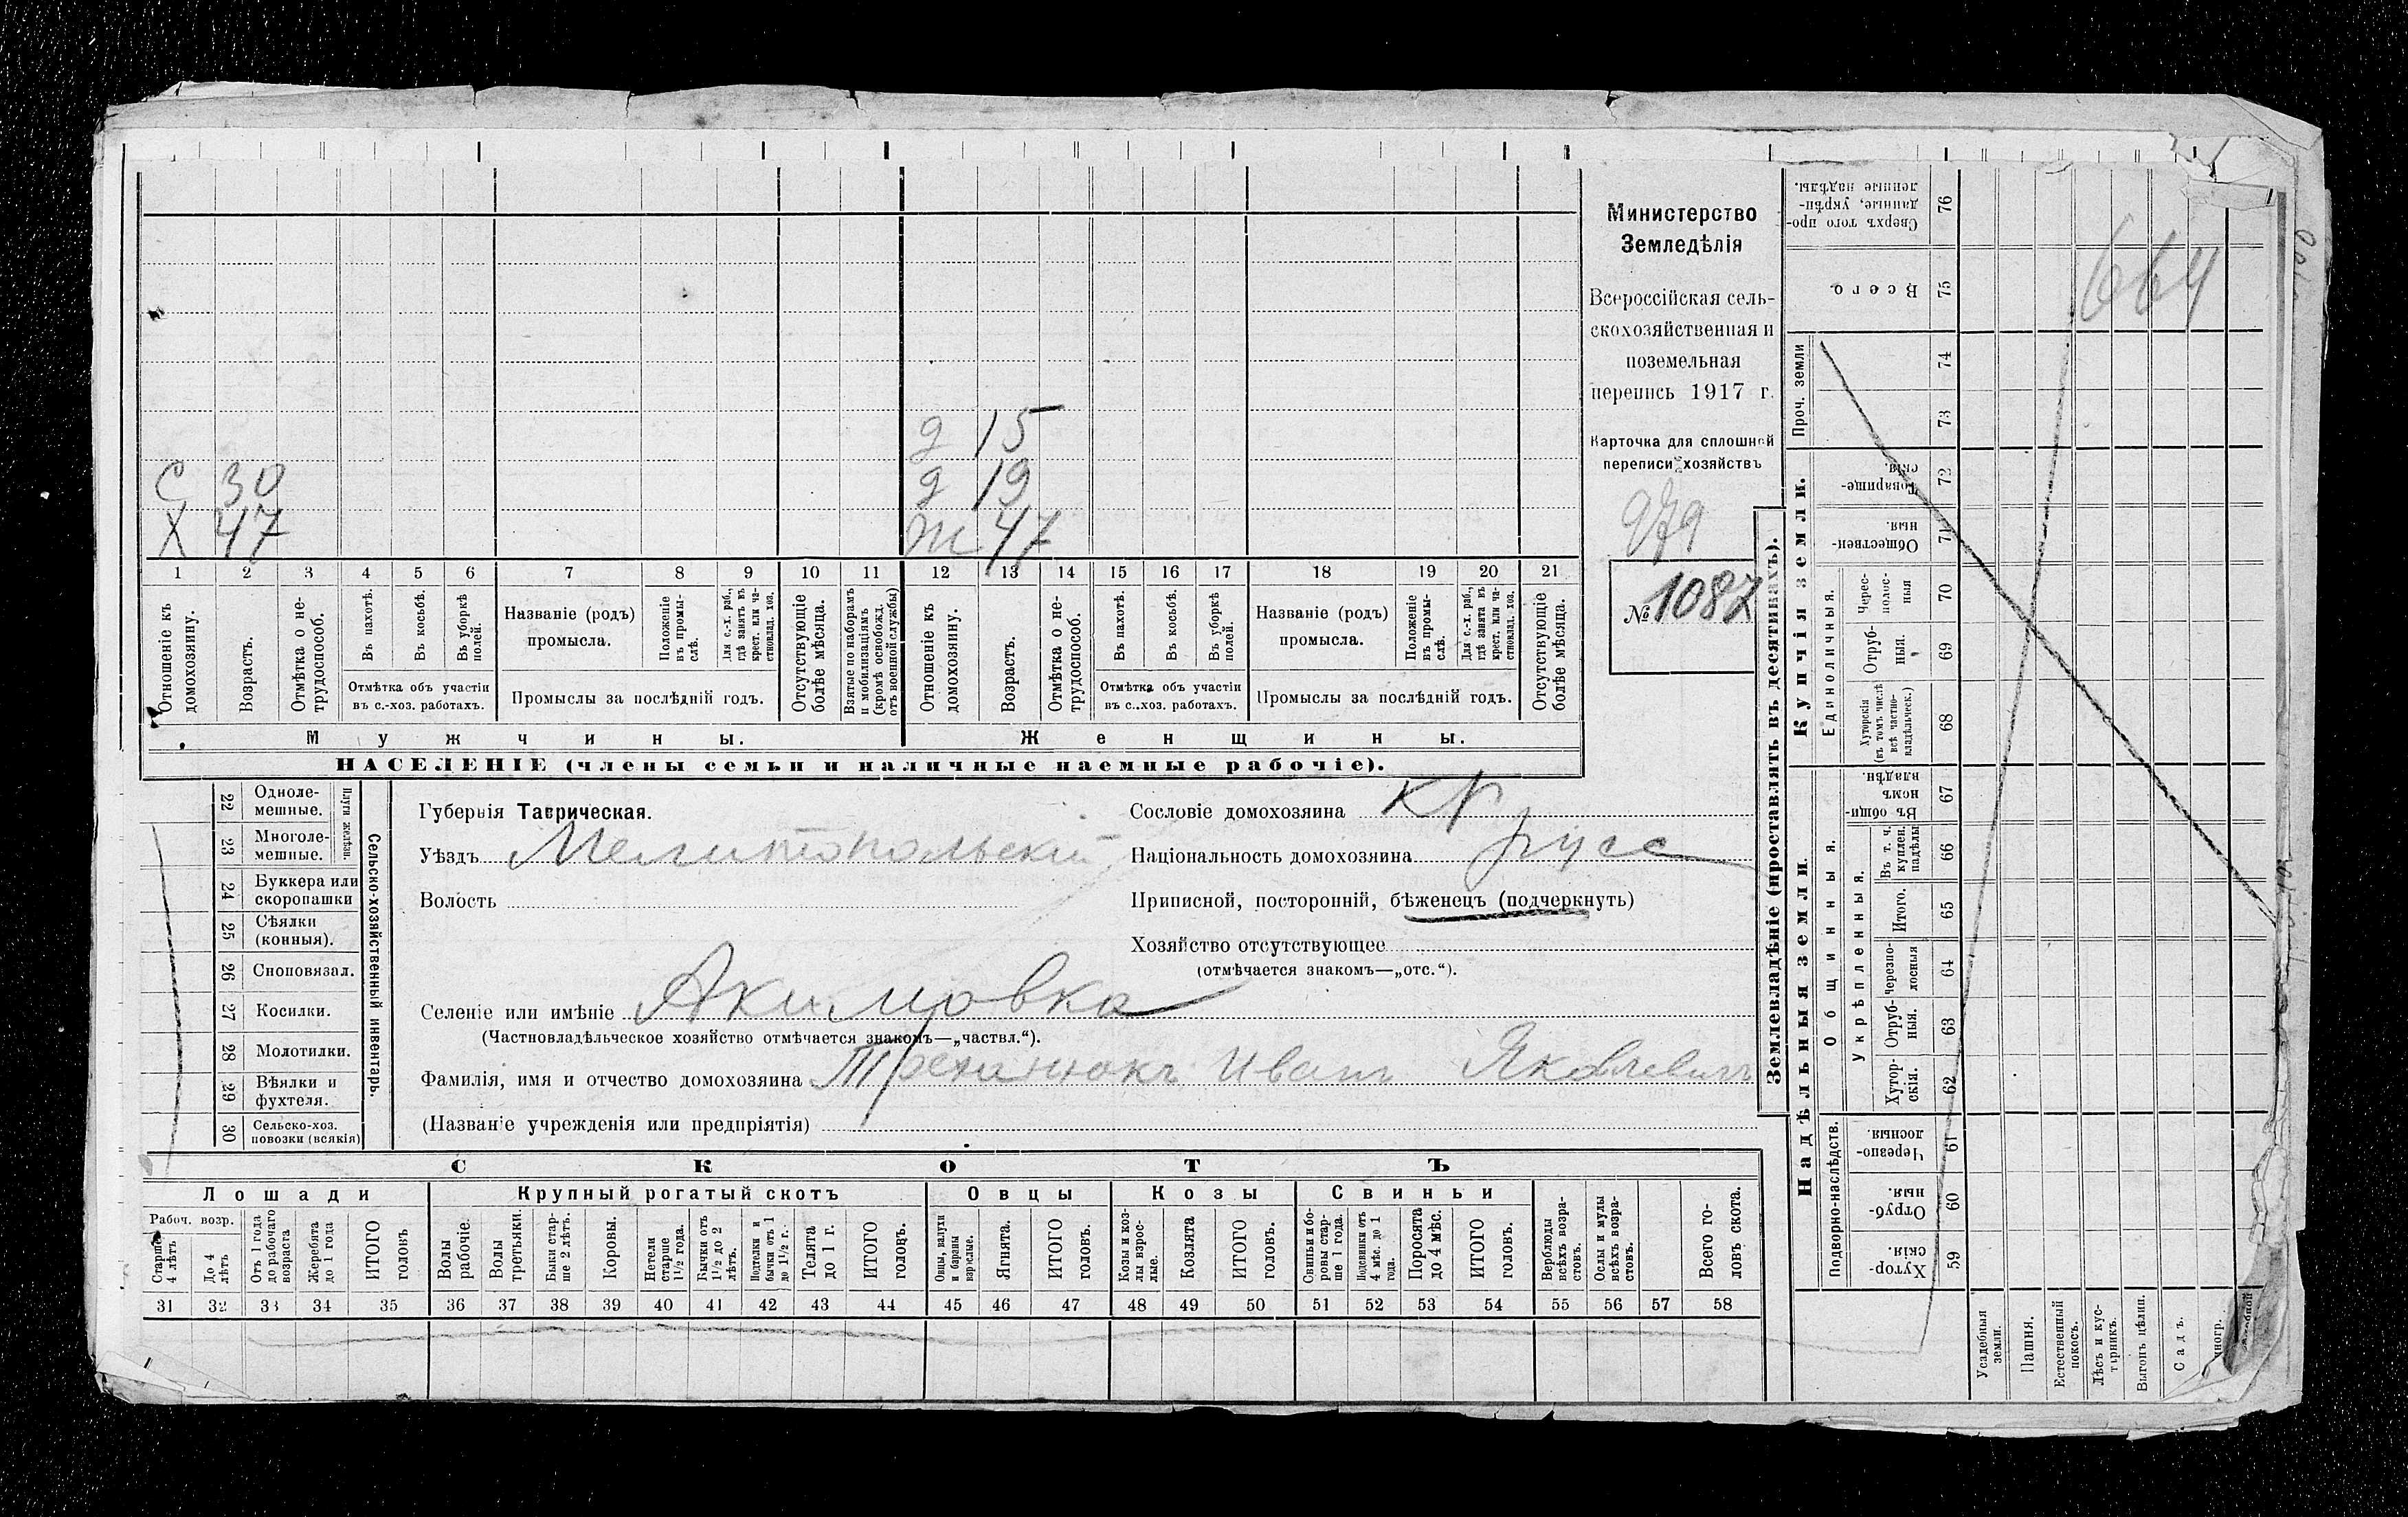 д 15
С 30 д 19
Х 47 Ж 47
1 2 3 4 5 6 7 8 9 10 11 12 13 14 15 16 17 18 19 20 21
Отношеніе къ домохозяину.
Возрастъ.
Отмѣтка о не-трудоспособ.
Въ пахотѣ.
Въ косьбѣ.
Въ уборкѣ полей.
Отмѣтка объ участіи въ с.-хоз. работахъ.
Названіе (родъ) промысла.
Положеніе въ промы-слѣ.
Для с.-х. раб., гдѣ занятъ въ крест. или ча-стновлад. хоз.
Промыслы за послѣдній годъ.
Отсутствующіе болѣе мѣсяца.
Взятые по наборамъ и мобилизаціямъ (кромѣ освобожд. отъ военной службы)
Отношеніе къ домохозяину.
Возрастъ.
Отмѣтка о не-трудоспособ.
Въ пахотѣ.
Въ косьбѣ.
Въ уборкѣ полей.
Отмѣтка объ участіи въ с..хоз. работахъ.
Названіе (родъ) промысла.
Положеніе въ промы-слѣ.
Для с.-х. раб., гдѣ занята въ крест. или ча-стновлад. хоз.
Промыслы за послѣдній годъ.
Отсутствующіе болѣе мѣсяца.
Мужчины. Женщины.
НАСЕЛЕНІЕ (члены семьи и наличные наемные рабочіе).
Министерство
Земледѣлія
Всероссійская сель-
скохозяйственная и
поземельная
перепись 1917 г.
Карточка для сплошной
переписи хозяйствъ
979
№ 1087
22 Одноле-мешные.
23 Многоле-мешные.
Плуги желѣзн.
24 Буккера или скоропашки
25 Сѣялки (конныя).
26 Сноповязал.
27 Косилки.
28 Молотилки.
29 Вѣялки и фухтеля.
30 Сельско-хоз. повозки (всякія)
Сельско-хозяйственный инвентарь.
Губернія Таврическая.
Уѣздъ Мелитопольскій
Волость
Селеніе или имѣніе Акимовка
(Частновладѣльческое хозяйство отмѣчается знакомъ—„частвл.“).
Фамилія, имя и отчество домохозяина Иванъ Яковлевичъ
(Названіе учрежденія или предпріятія)
Сословіе домохозяина
Національность домохозяина русс
Приписной, посторонній, бѣженецъ (подчеркнуть)
Хозяйство отсутствующее
(отмѣчается знакомъ—„отс.“).
СКОТЪ
Лошади Крупный рогатый скотъ Овцы Козы Свиньи
Рабоч. возр.
Старше 4 лѣтъ
До 4 лѣтъ
Отъ 1 года до рабочаго возраста
Жеребята до 1 года
ИТОГО головъ
Волы рабочіе.
Волы третьяки.
Быки стар-ше 2 лѣтъ.
Коровы.
Нетели старше 1½ года.
Бычки отъ 1½ до 2 лѣтъ.
Подтелки и бычки отъ 1 до 1½ г.
Телята до 1 г.
ИТОГО головъ.
Овцы, валухи и бараны взрослые.
Ягнята.
ИТОГО головъ.
Козы и коз-лы взрос-лые.
Козлята
ИТОГО головъ.
Свиньи и бо-ровы стар-ше 1 года.
Подсвинки отъ 4 мѣс. до 1 года.
Поросята до 4 мѣс.
ИТОГО головъ.
Верблюды всѣхъ возра-стовъ.
Ослы и мулы всѣхъ возра-стовъ.
Всего го-ловъ скота.
31 32 33 34 35 36 37 38 39 40 41 42 43 44 45 46 47 48 49 50 51 52 53 54 55 56 57 58
Землевладѣніе (проставлять въ десятинахъ).
Купчія земли.
Надѣльныя земли.
Сверхъ того про-данные, укрѣп-ленные надѣлы. 76
Всего. 75
664
Проч. земли 74 73
Товарище-скія. 72
Обществен-ныя. 71
Единоличныя.
Черес-полос-ныя 70
Отруб-ныя. 69
Хуторскія (въ томъ числѣ всѣ частно-владѣльческ.) 68
Общинныя.
Въ общи-номъ владѣн. 67
Укрѣпленныя.
Въ т. ч. куплен. надѣлы 66
Итого. 65
Черезпо-лосныя 64
Отруб-ныя. 63
Хутор-скія. 62
Подворно-наслѣдств.
Черезпо-лосныя. 61
Отруб-ныя. 60
Хутор-скія. 59
Усадебныя земли.
Пашня.
Естественный покосъ.
Лѣсъ и кус-тарникъ.
Выгонъ цѣлин.
Садъ.